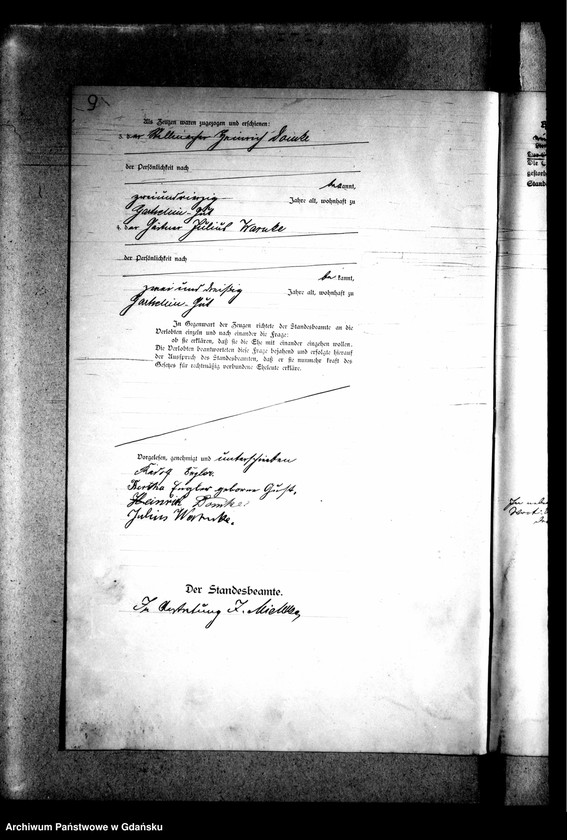 9
Als Zeugen waren zugezogen und erschienen:
3. der Stellmacher Heinrich Domke
der Persönlichkeit nach
be kannt,
zweiundvierzig Jahre alt, wohnhaft zu
Gut
4. der Gärtner Julius Warnke
der Persönlichkeit nach
be kannt,
zwei und dreißig Jahre alt, wohnhaft zu
Gut
In Gegenwart der Zeugen richtete der Standesbeamte an die
Verlobten einzeln und nach einander die Frage:
ob sie erklären, daß sie die Ehe mit einander eingehen wollen.
Die Verlobten beantworteten diese Frage bejahend und erfolgte hierauf
der Ausspruch des Standesbeamten, daß er sie nunmehr kraft des
Gesetzes für rechtmäßig verbundene Eheleute erkläre.
Vorgelesen, genehmigt und unterschrieben
Bertha geborene Gust.
Heinrich Domke
Julius Warnke.
Der Standesbeamte.
In Vertretung J. Mielke
Archiwum Państwowe w Gdańsku